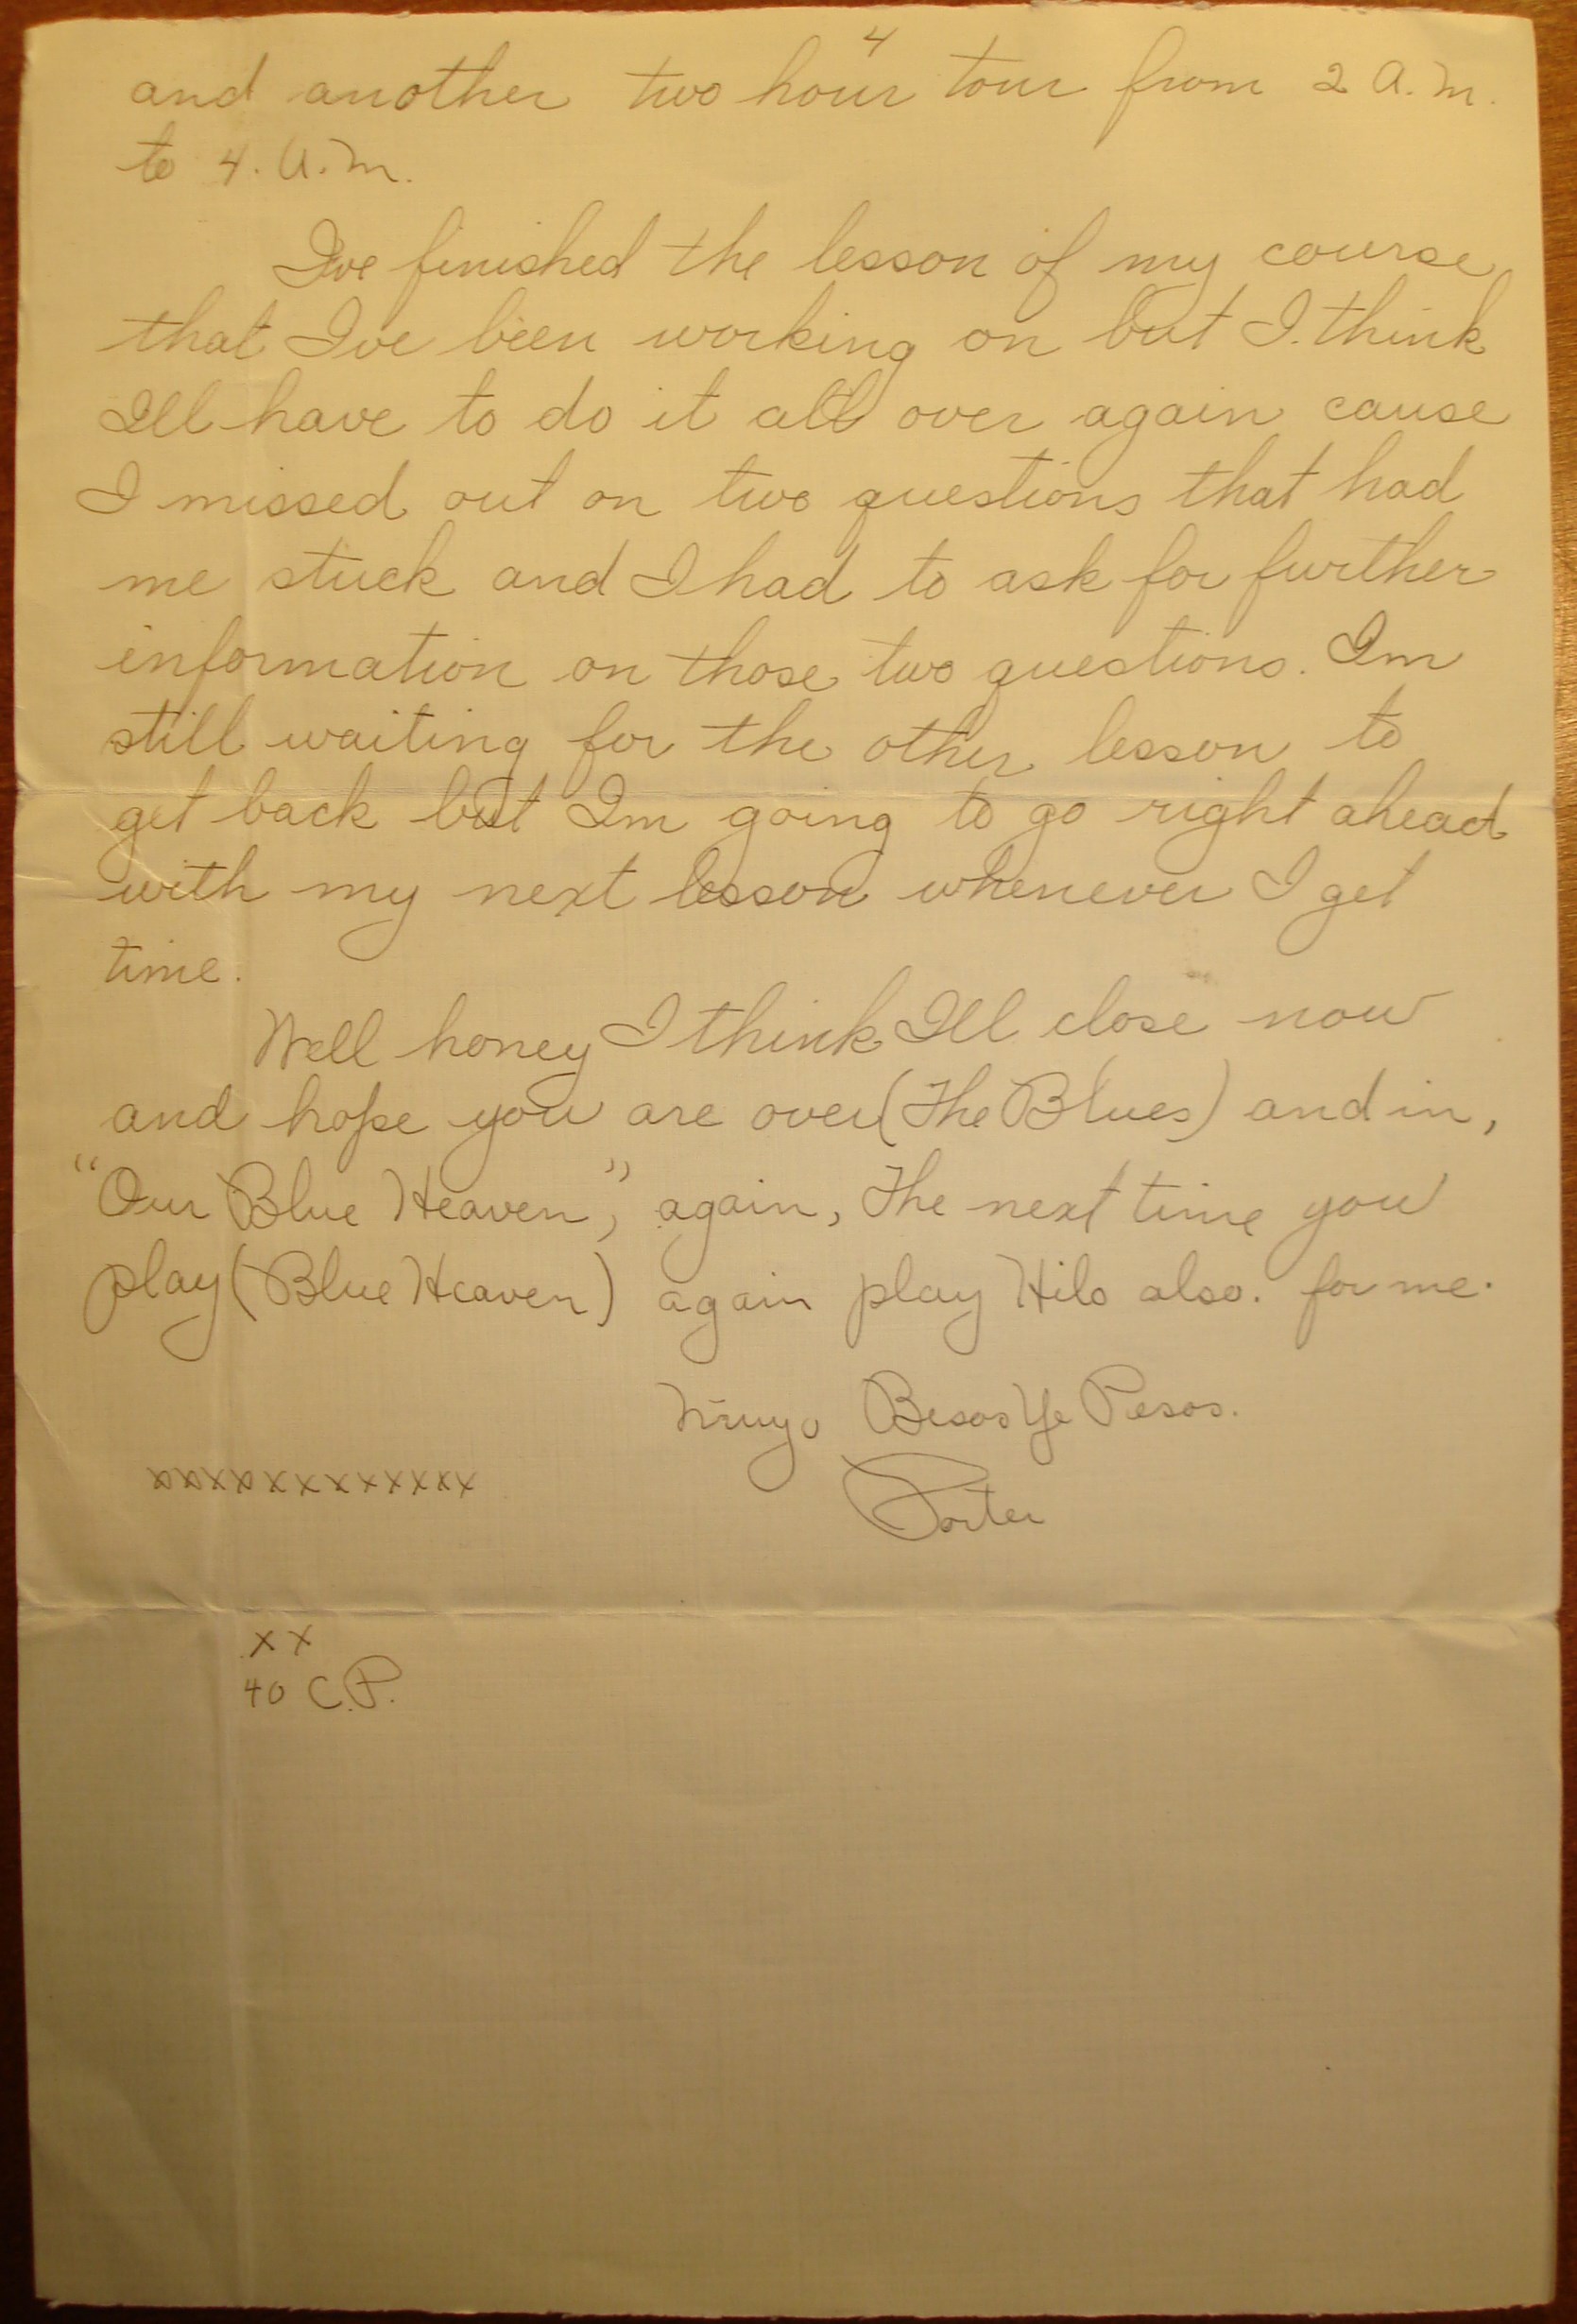 4
and another two hour tour from 2 A.M.
to 4. A.M.
Ive finished the lesson of my course
that Ive been working on but I think
Ill have to do it all over again cause
I missed out on two questions that had
me stuck and I had to ask for further
information on those two questions. Im
still waiting for the other lesson to
get back but Im going to go right ahead
with my next lesson whenever I get
time.
Well honey I think Ill close now
and hope you are over (The Blues) and in,
"Our Blue Heaven", again, The next time you
play (Blue Heaven) again play Hilo also. for me.
Besos Ye Pesos.
xxxxxxxxxxxxx
Porter
xx
40 C.P.